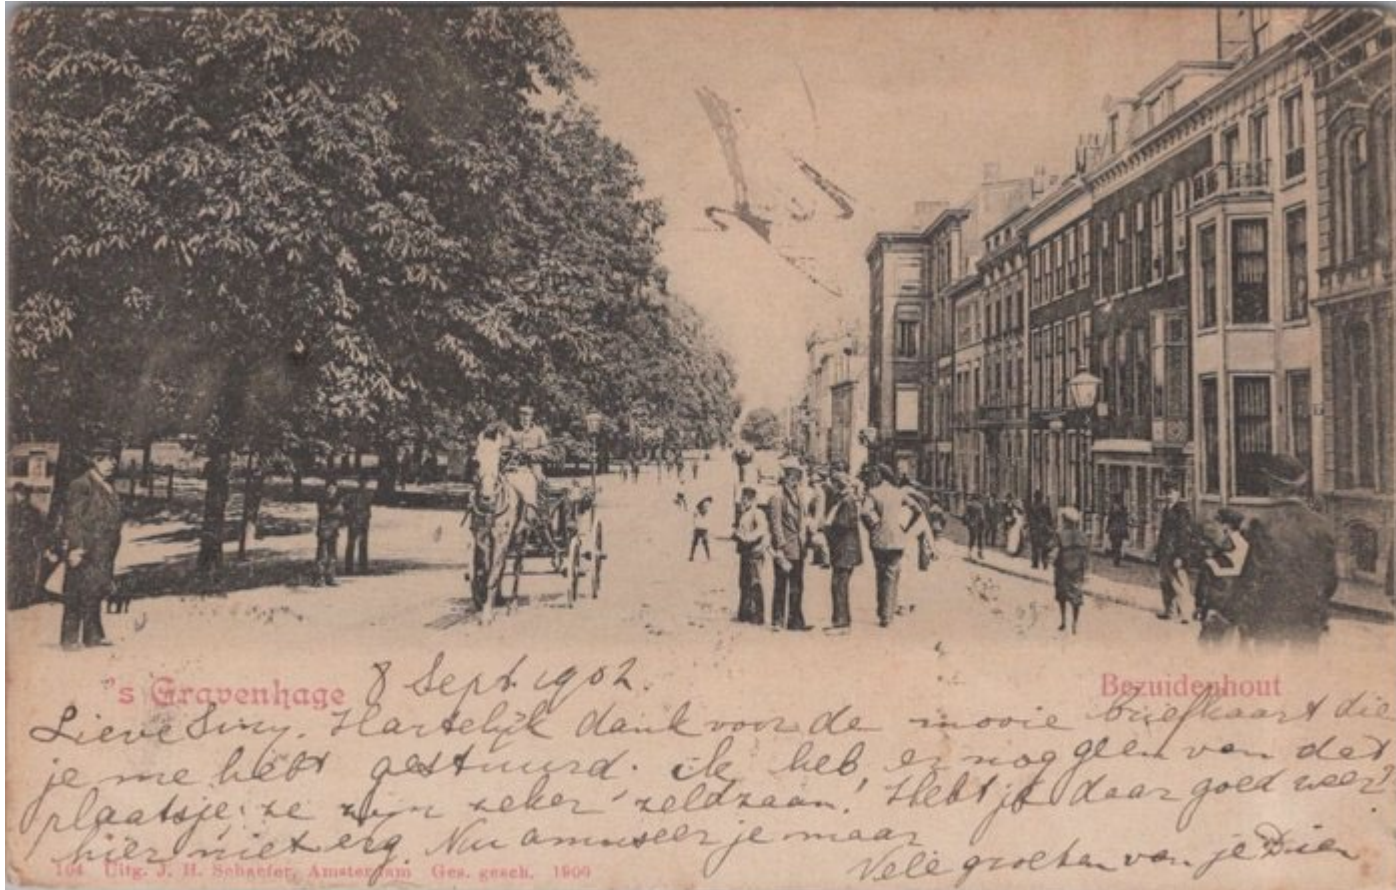 's Gravenhage
8 Sept. 1902.
Bezuidenhout
Lieve Siny. Hartelijk dank voor de mooie briefkaart die
je me hebt gestuurd. ik heb er nog geen van dat
plaatsje; ze zijn zeker zeldzaam! Hebt je daar goed weer?
hier niet erg. Nu amuseer je maar
Vele groeten van je Dien
104 Uitg. J. H. Schaefer, Amsterdam Ges. gesch. 1900